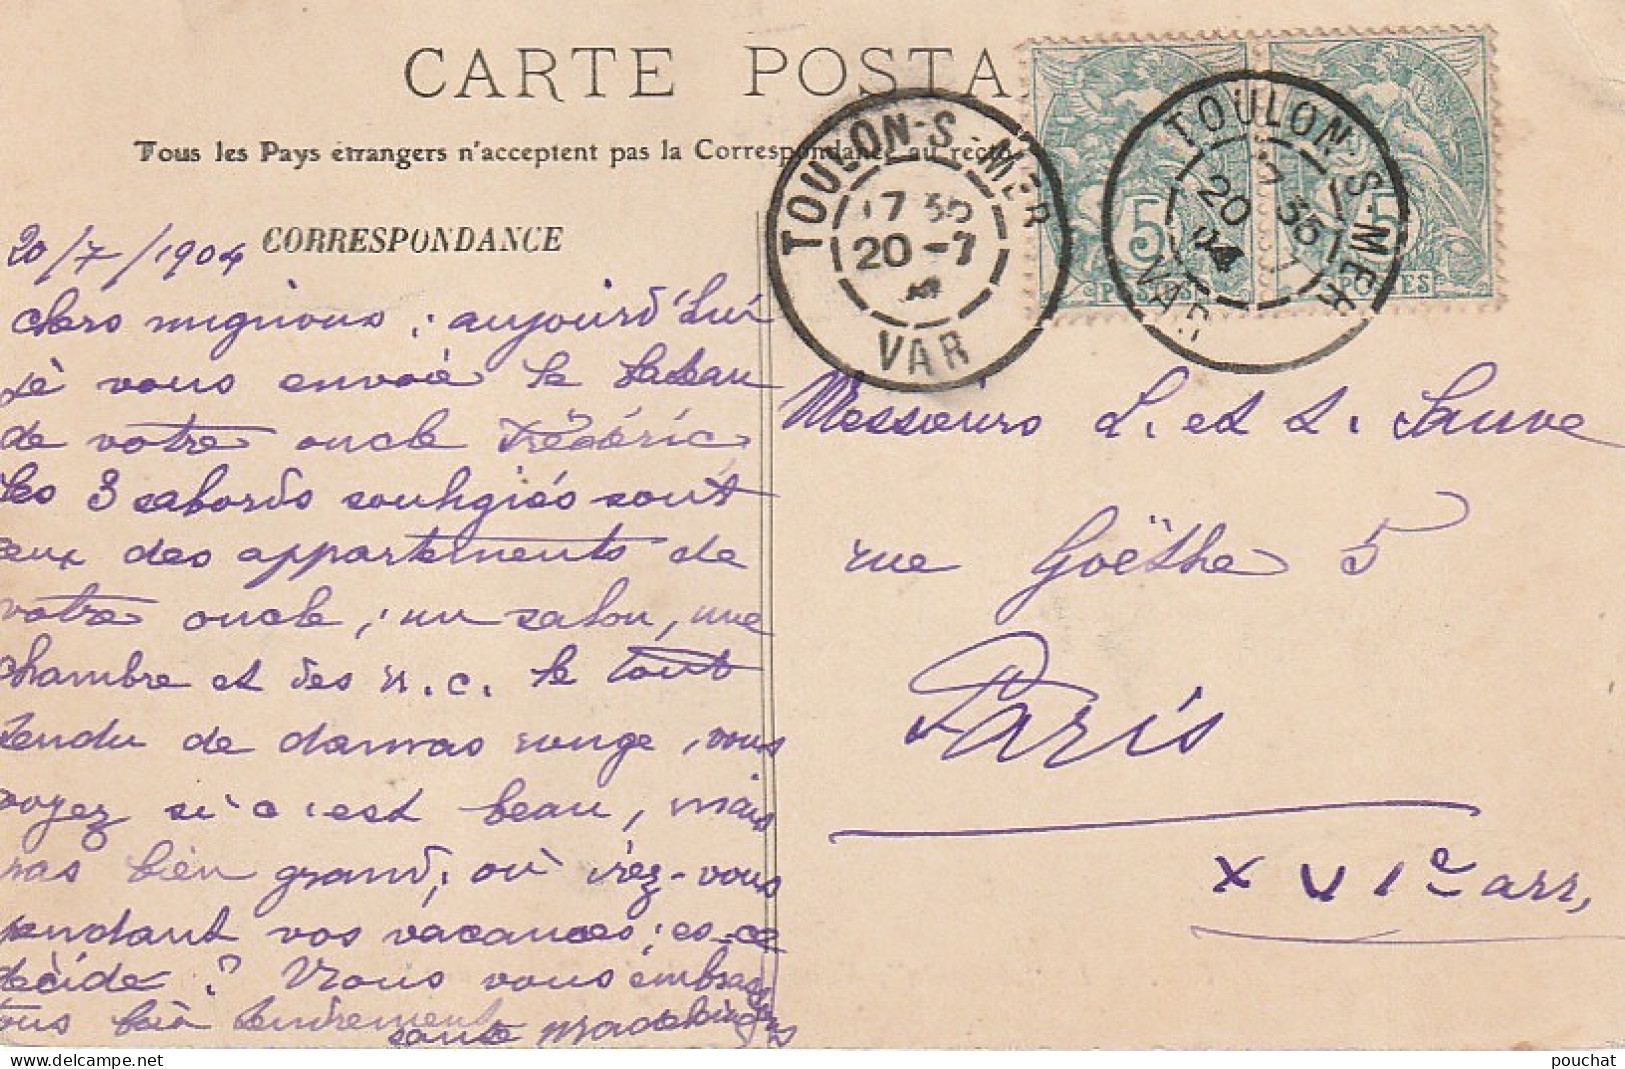 CARTE POSTA
Tous les Pays étrangers n'acceptent pas la Correspondance au recto
CORRESPONDANCE
20/7/1904
chers mignons ; aujourd'hui
je vous envoie le bateau
de votre oncle Frédéric
les 3 sabords soulignés sont
ceux des appartements de
votre oncle, un salon, une
chambre et des w.c. le tout
tendu de damas rouge, vous
voyez si c'est beau, mais
pas bien grand, où irez-vous
pendant vos vacances ; est-ce
décidé ? Nous vous embrassons
tous bien tendrement
tante Madeleine
TOULON-S-MER
17 35
20-7
VAR
TOULON-S-MER
17 35
20 7
04
VAR
5
5
POSTES
POSTES
Messieurs L. et L. Sauve
rue Goëthe 5
Paris
XVIe arr,
pouchat